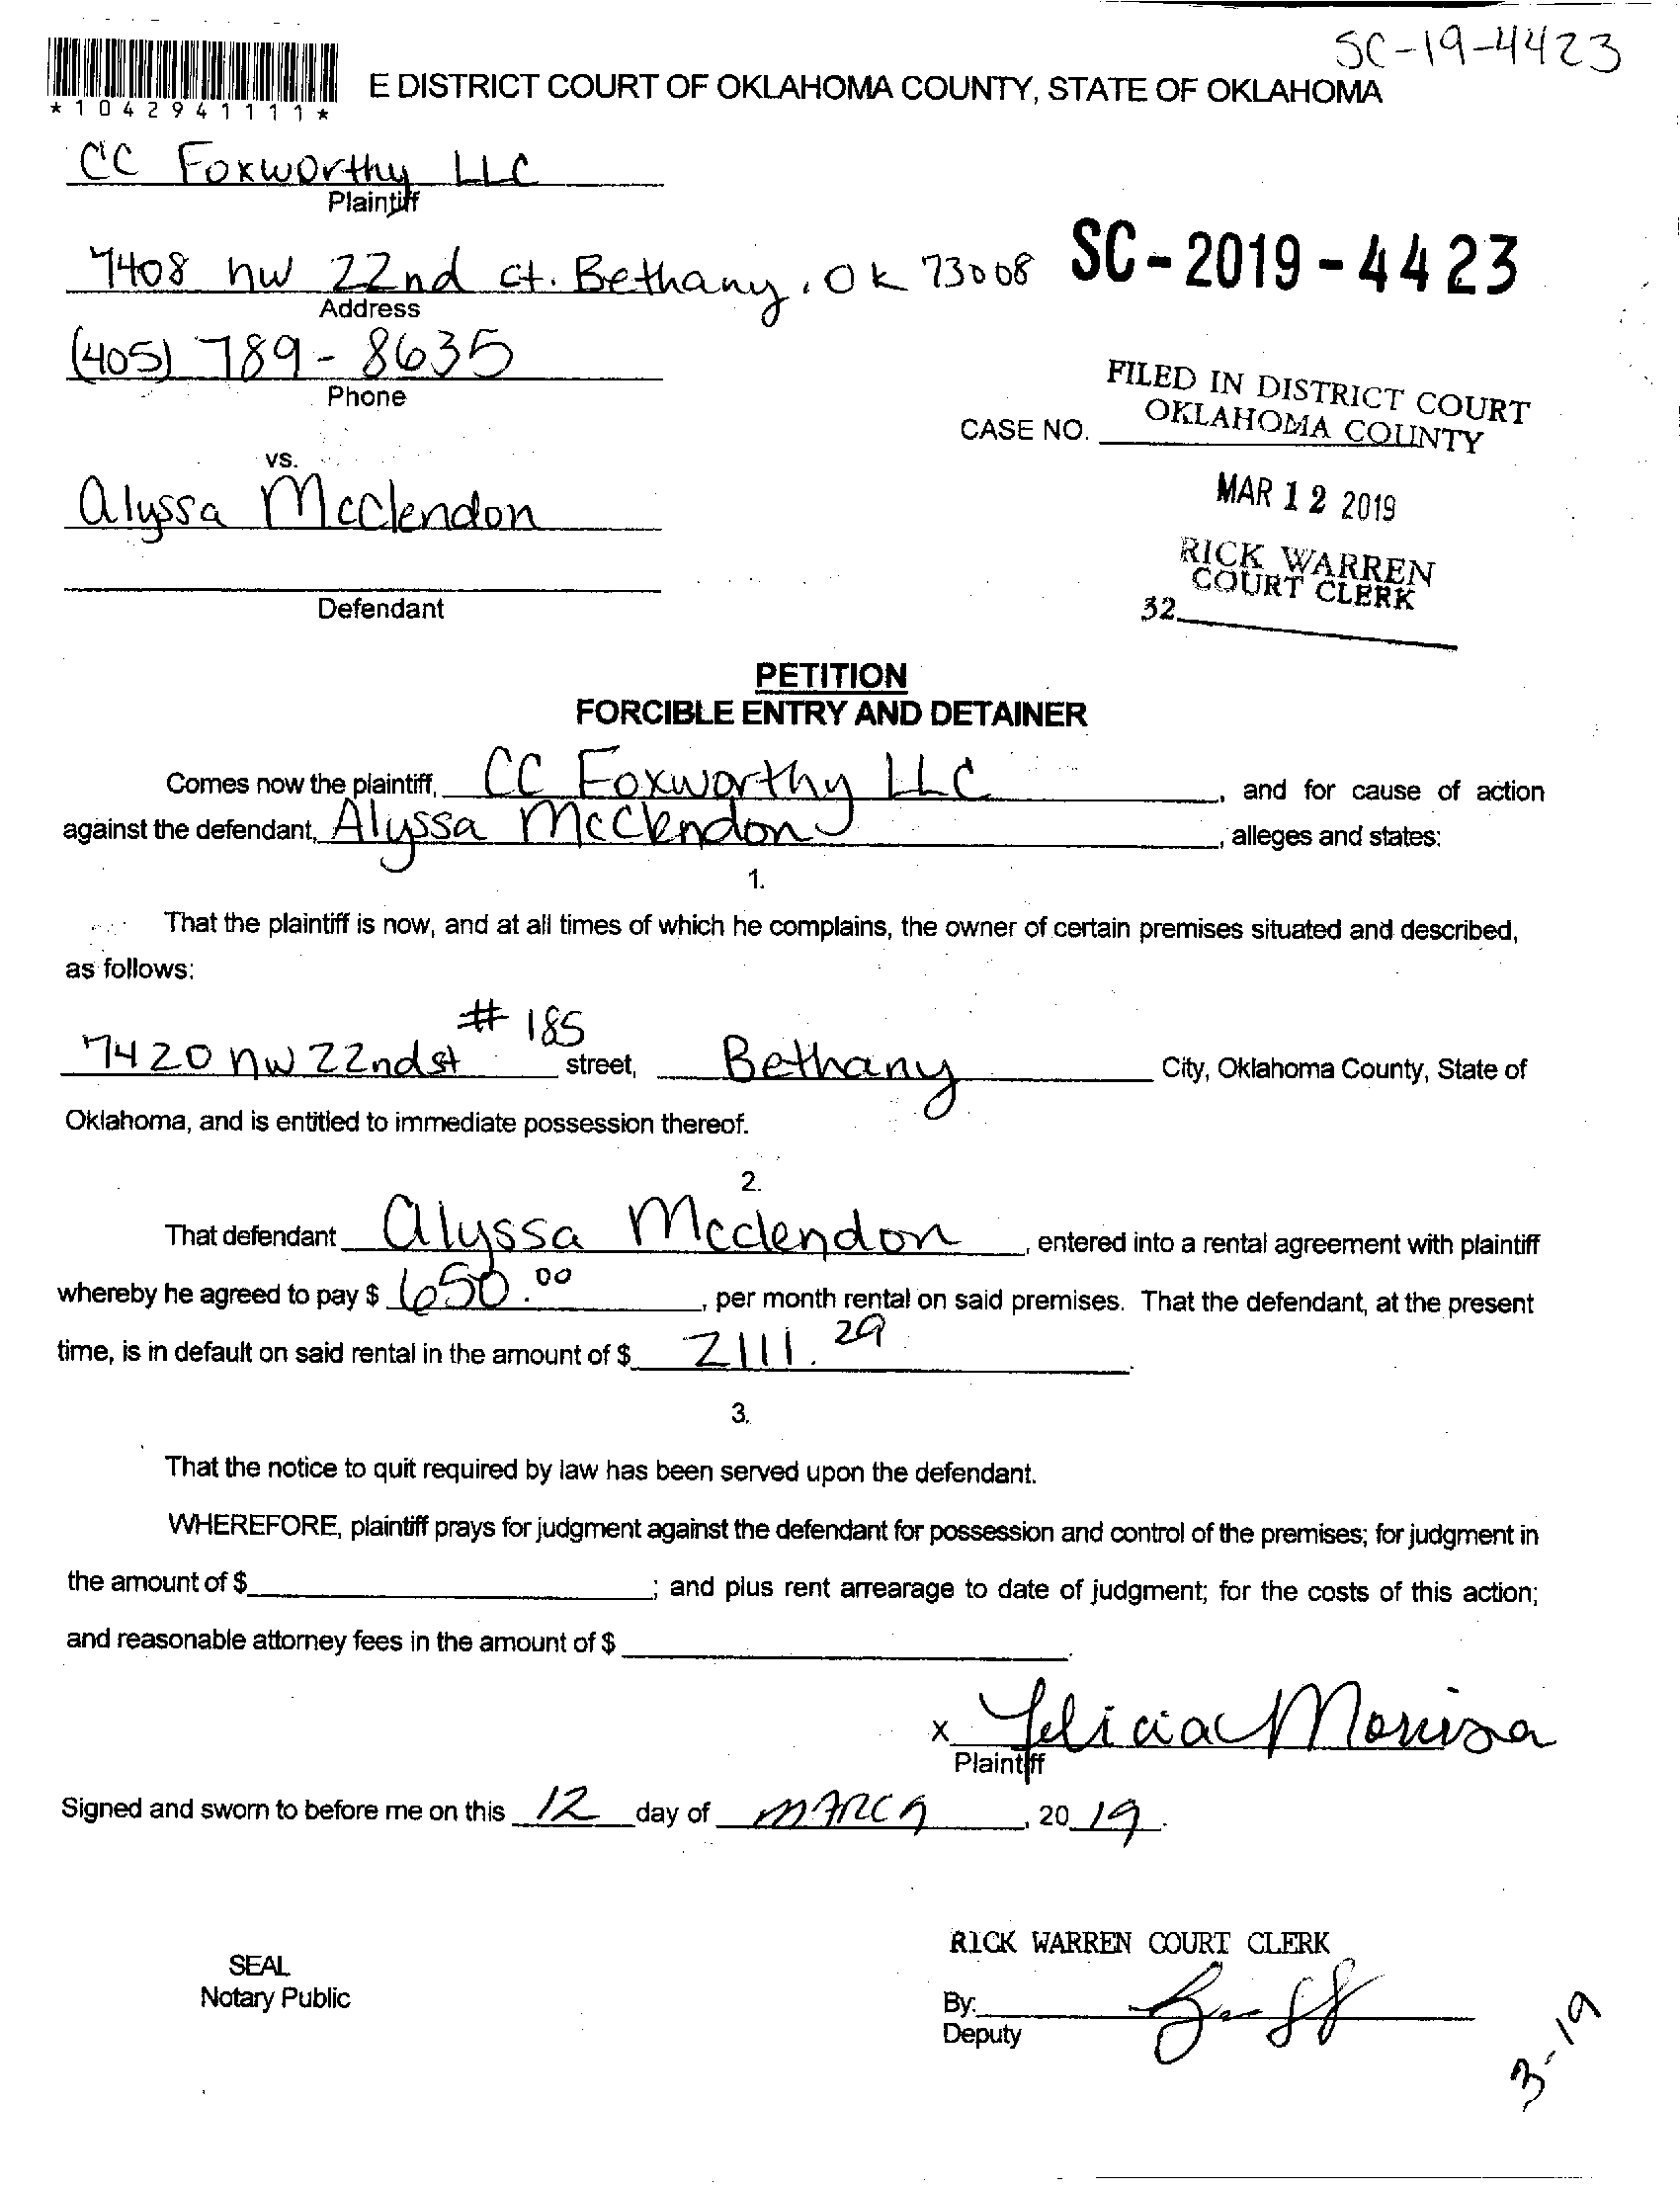 SC-19-4423
*1042941111*
E DISTRICT COURT OF OKLAHOMA COUNTY, STATE OF OKLAHOMA
CC Foxworthy LLC
Plaintiff
7408 nw 22nd ct. Bethany, OK 73008
SC-2019-4423
Address
(405) 789-8635
Phone
FILED IN DISTRICT COURT
OKLAHOMA COUNTY
CASE NO.
vs.
Alyssa McClendon
MAR 12 2019
RICK WARREN
COURT CLERK
32
Defendant
PETITION
FORCIBLE ENTRY AND DETAINER
Comes now the plaintiff, CC Foxworthy LLC, and for cause of action
against the defendant, Alyssa McClendon, alleges and states:
1.
That the plaintiff is now, and at all times of which he complains, the owner of certain premises situated and described,
as follows:
7420 nw 22nd st # 185 street, Bethany City, Oklahoma County, State of
Oklahoma, and is entitled to immediate possession thereof.
2.
That defendant Alyssa Mcclendon, entered into a rental agreement with plaintiff
whereby he agreed to pay $ 650.00, per month rental on said premises. That the defendant, at the present
time, is in default on said rental in the amount of $ 2111.29.
3.
That the notice to quit required by law has been served upon the defendant.
WHEREFORE, plaintiff prays for judgment against the defendant for possession and control of the premises; for judgment in
the amount of $ ; and plus rent arrearage to date of judgment; for the costs of this action;
and reasonable attorney fees in the amount of $ .
x Felicia
Plaintiff
Signed and sworn to before me on this 12 day of MARCH, 20 19.
RICK WARREN COURT CLERK
SEAL
Notary Public
By:
Deputy
3-19